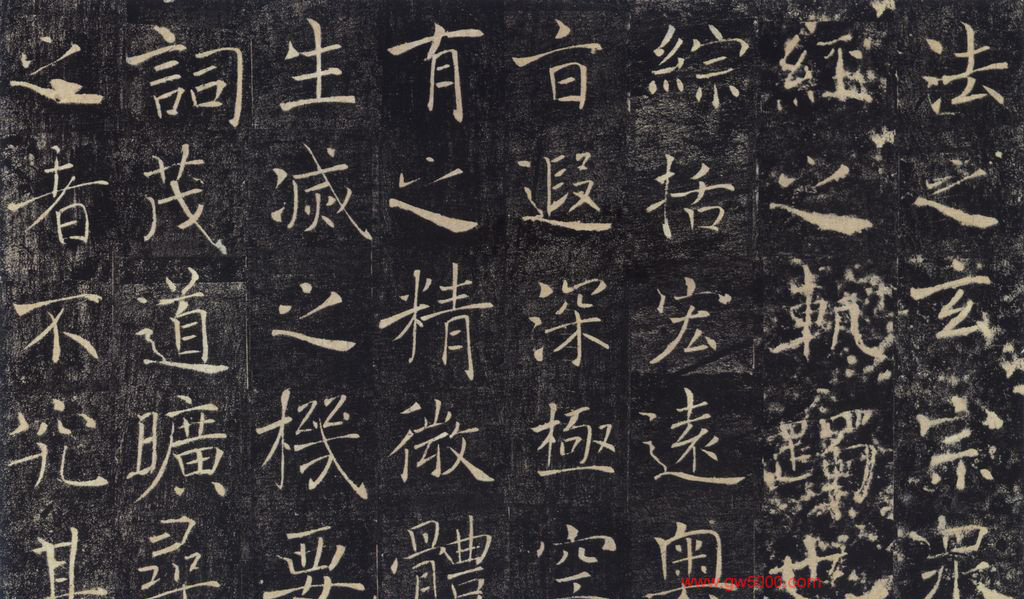 法之玄宗衆
經之軌躅也
綜括宏遠奥
旨遐深極空
有之精微體
生滅之機要
詞茂道曠尋
之者不究其
www.gw5000.com